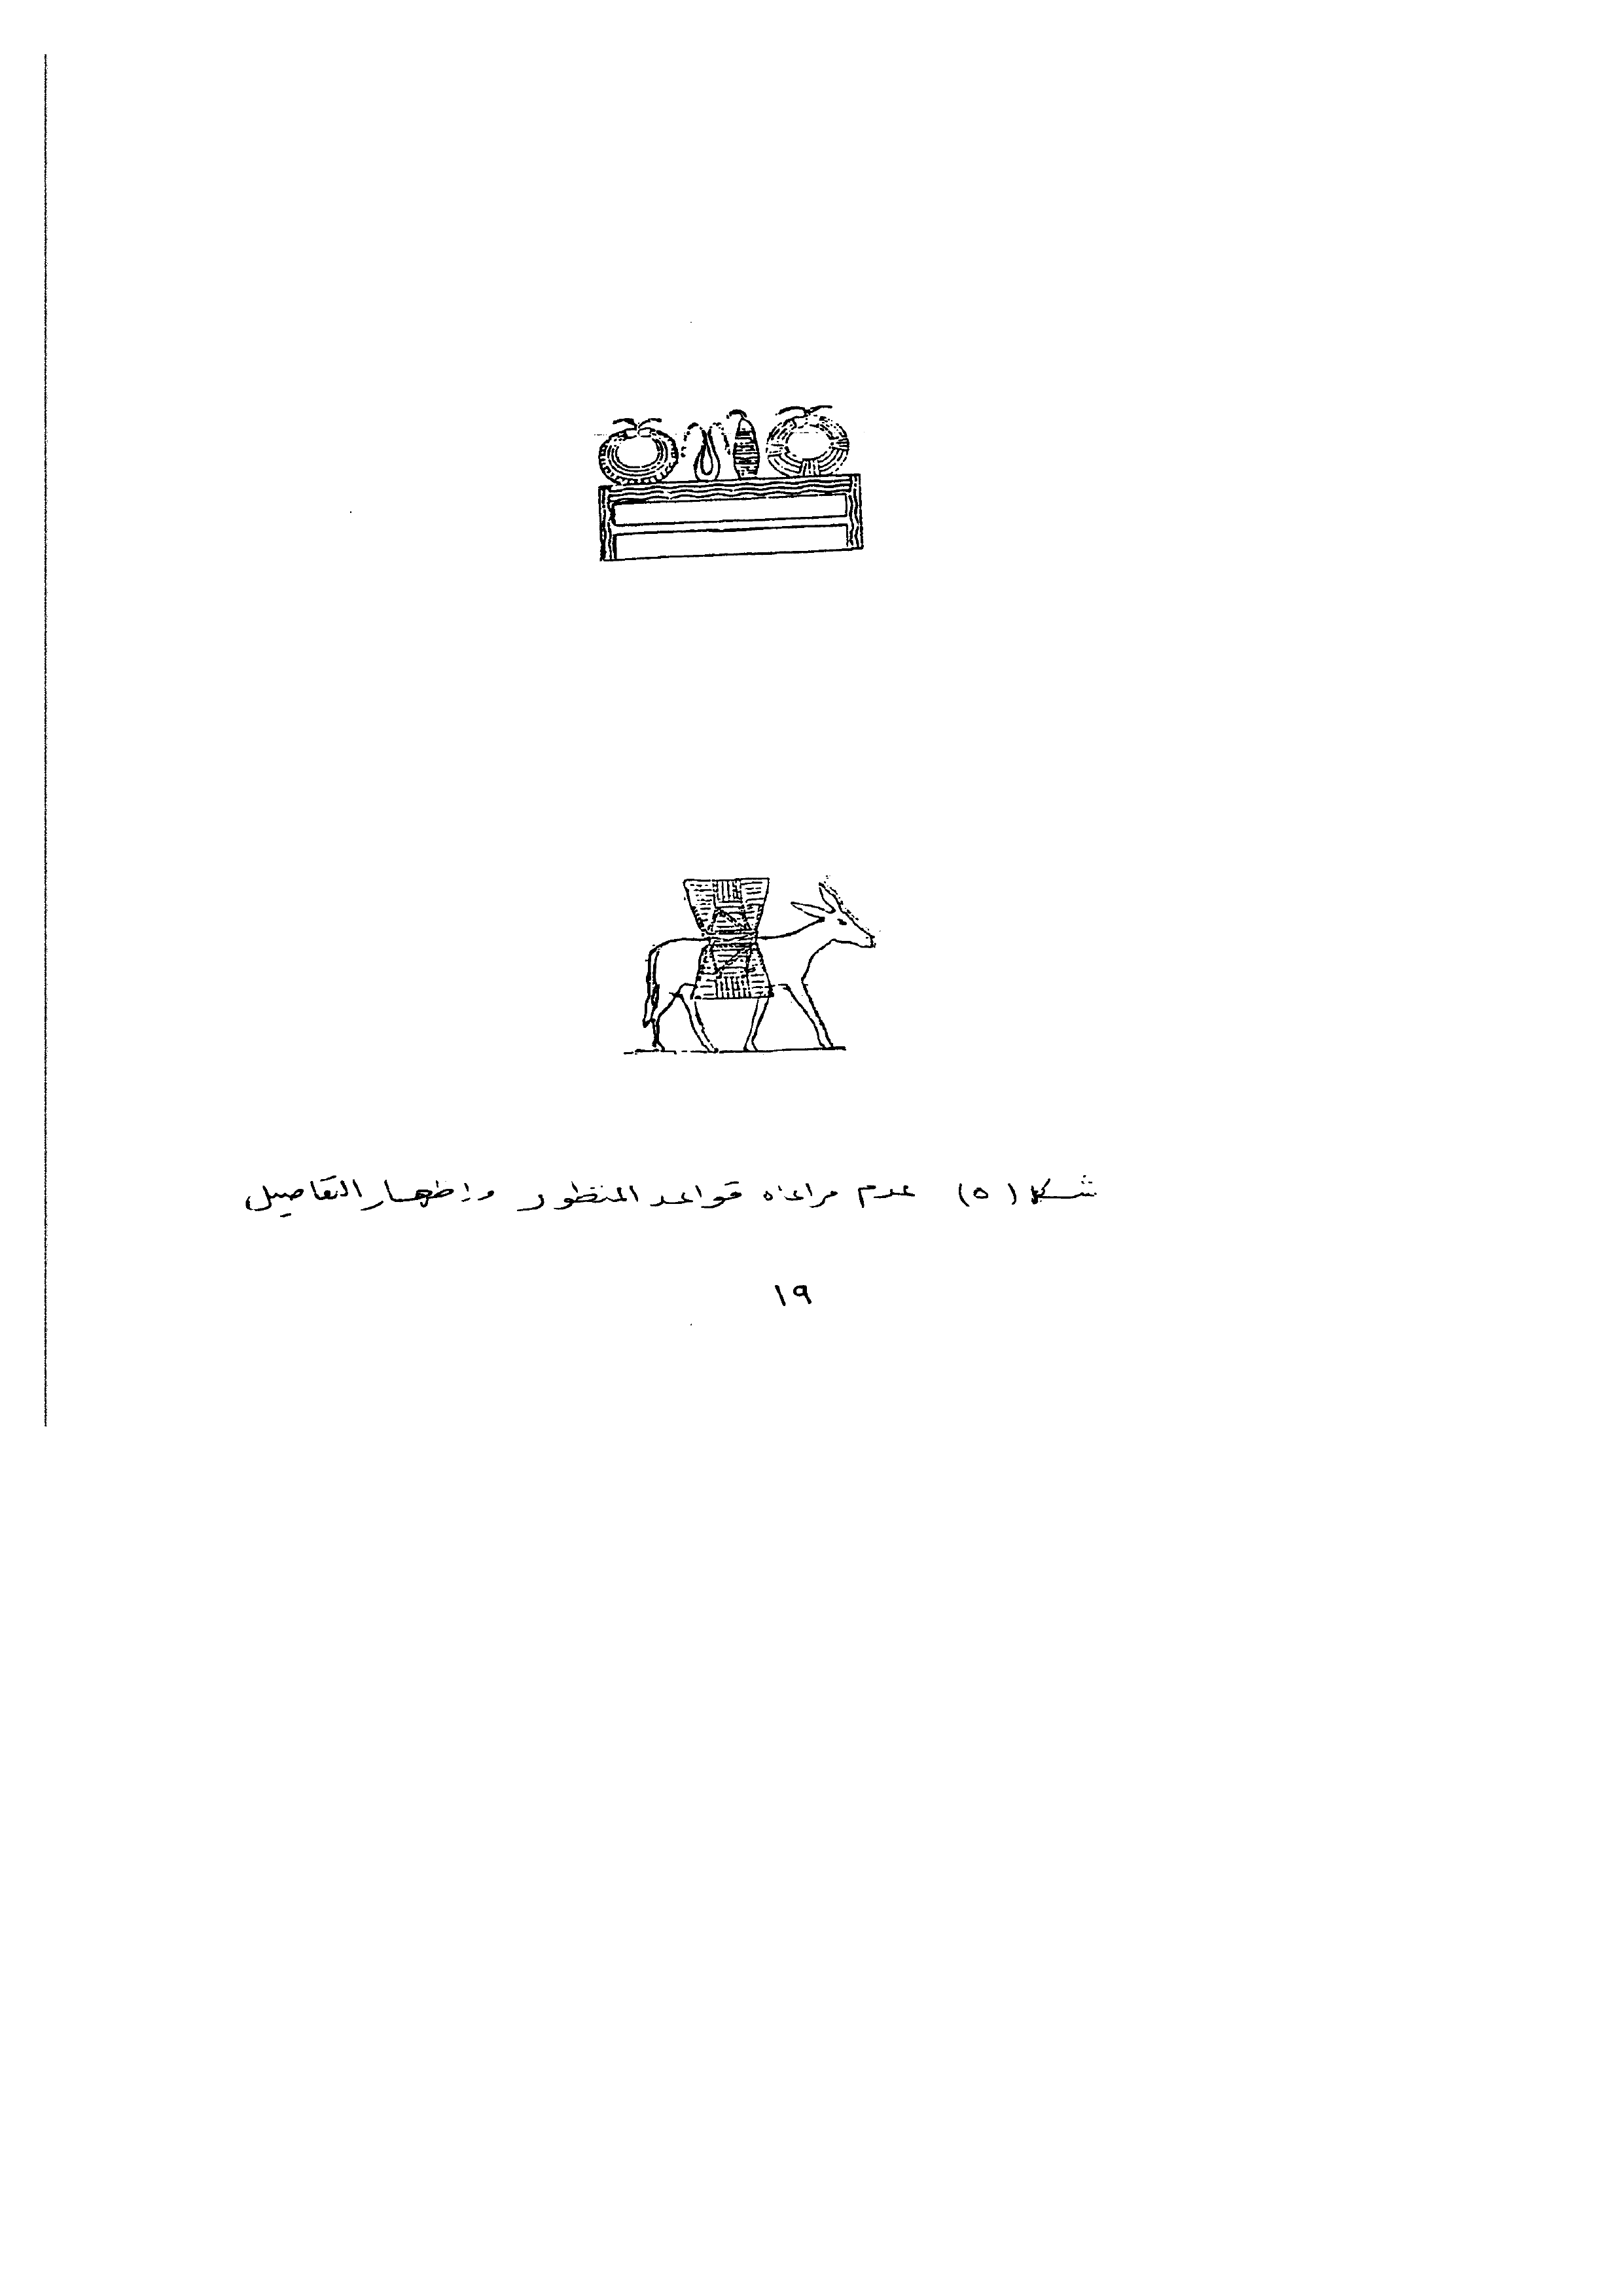 شكل (٥) عدم مراعاة قواعد المنظور وإظهار التفاصيل
١٩